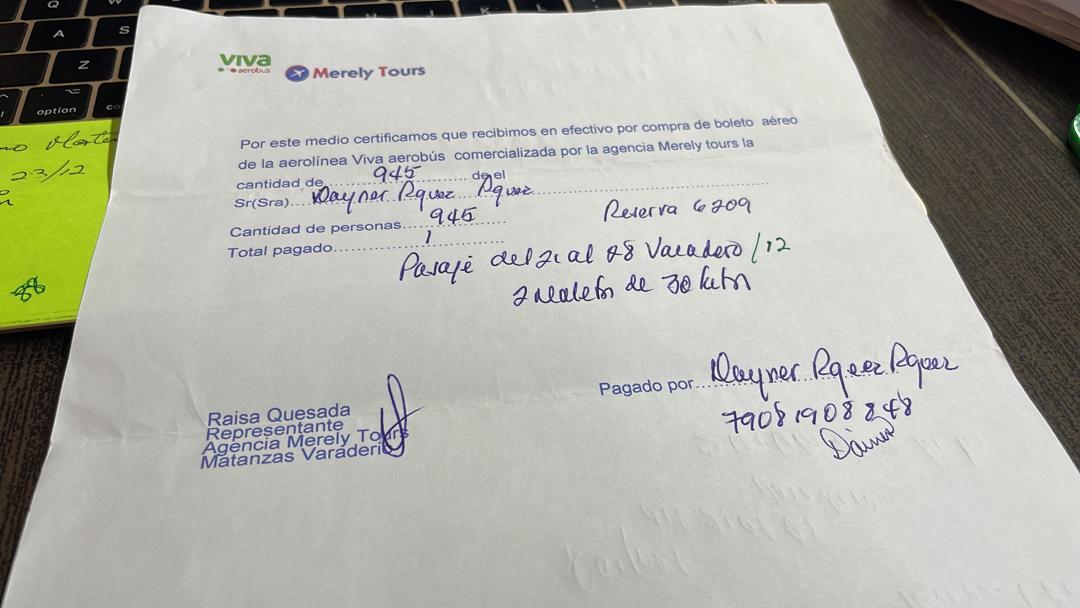 Q
A
S
Z
K
L
option
23/12
viva
aerobus
Merely Tours
Por este medio certificamos que recibimos en efectivo por compra de boleto aéreo
de la aerolínea Viva aerobús comercializada por la agencia Merely tours la
cantidad de 945 de el
Sr(Sra).... Dayner Rguez Rguez
Cantidad de personas... 945
Reserva 6209
Total pagado... 1
Pasaje del 21 al 28 Varadero /12
2 Maletas de 30 kilos
Pagado por... Dayner Rguez Rguez
79081908848
Raisa Quesada
Representante
Agencia Merely Tours
Matanzas Varadero